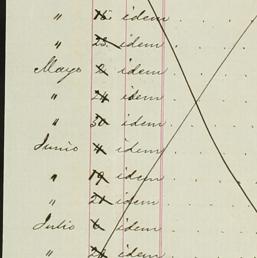 " 15 idem
" 23 idem
Mayo 2 idem
" 24 idem
" 30 idem
Junio 4 idem
" 19 idem
" 21 idem
Julio 6 idem
" idem